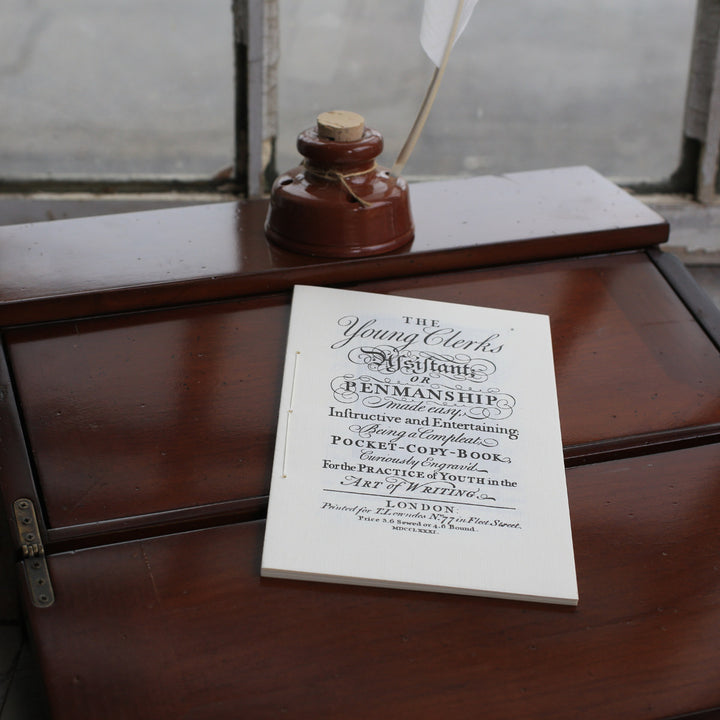 THE
Young Clerks
Assistant;
OR
PENMANSHIP
made easy,
Inſtructive and Entertaining;
Being a Compleat
POCKET-COPY-BOOK,
Curiously Engrav'd
For the PRACTICE of YOUTH in the
ART of WRITING.
LONDON:
Printed for T. Lowndes No. 77 in Fleet Street.
Price 3.6 Sewed or 4.6 Bound.
MDCCLXXXI.